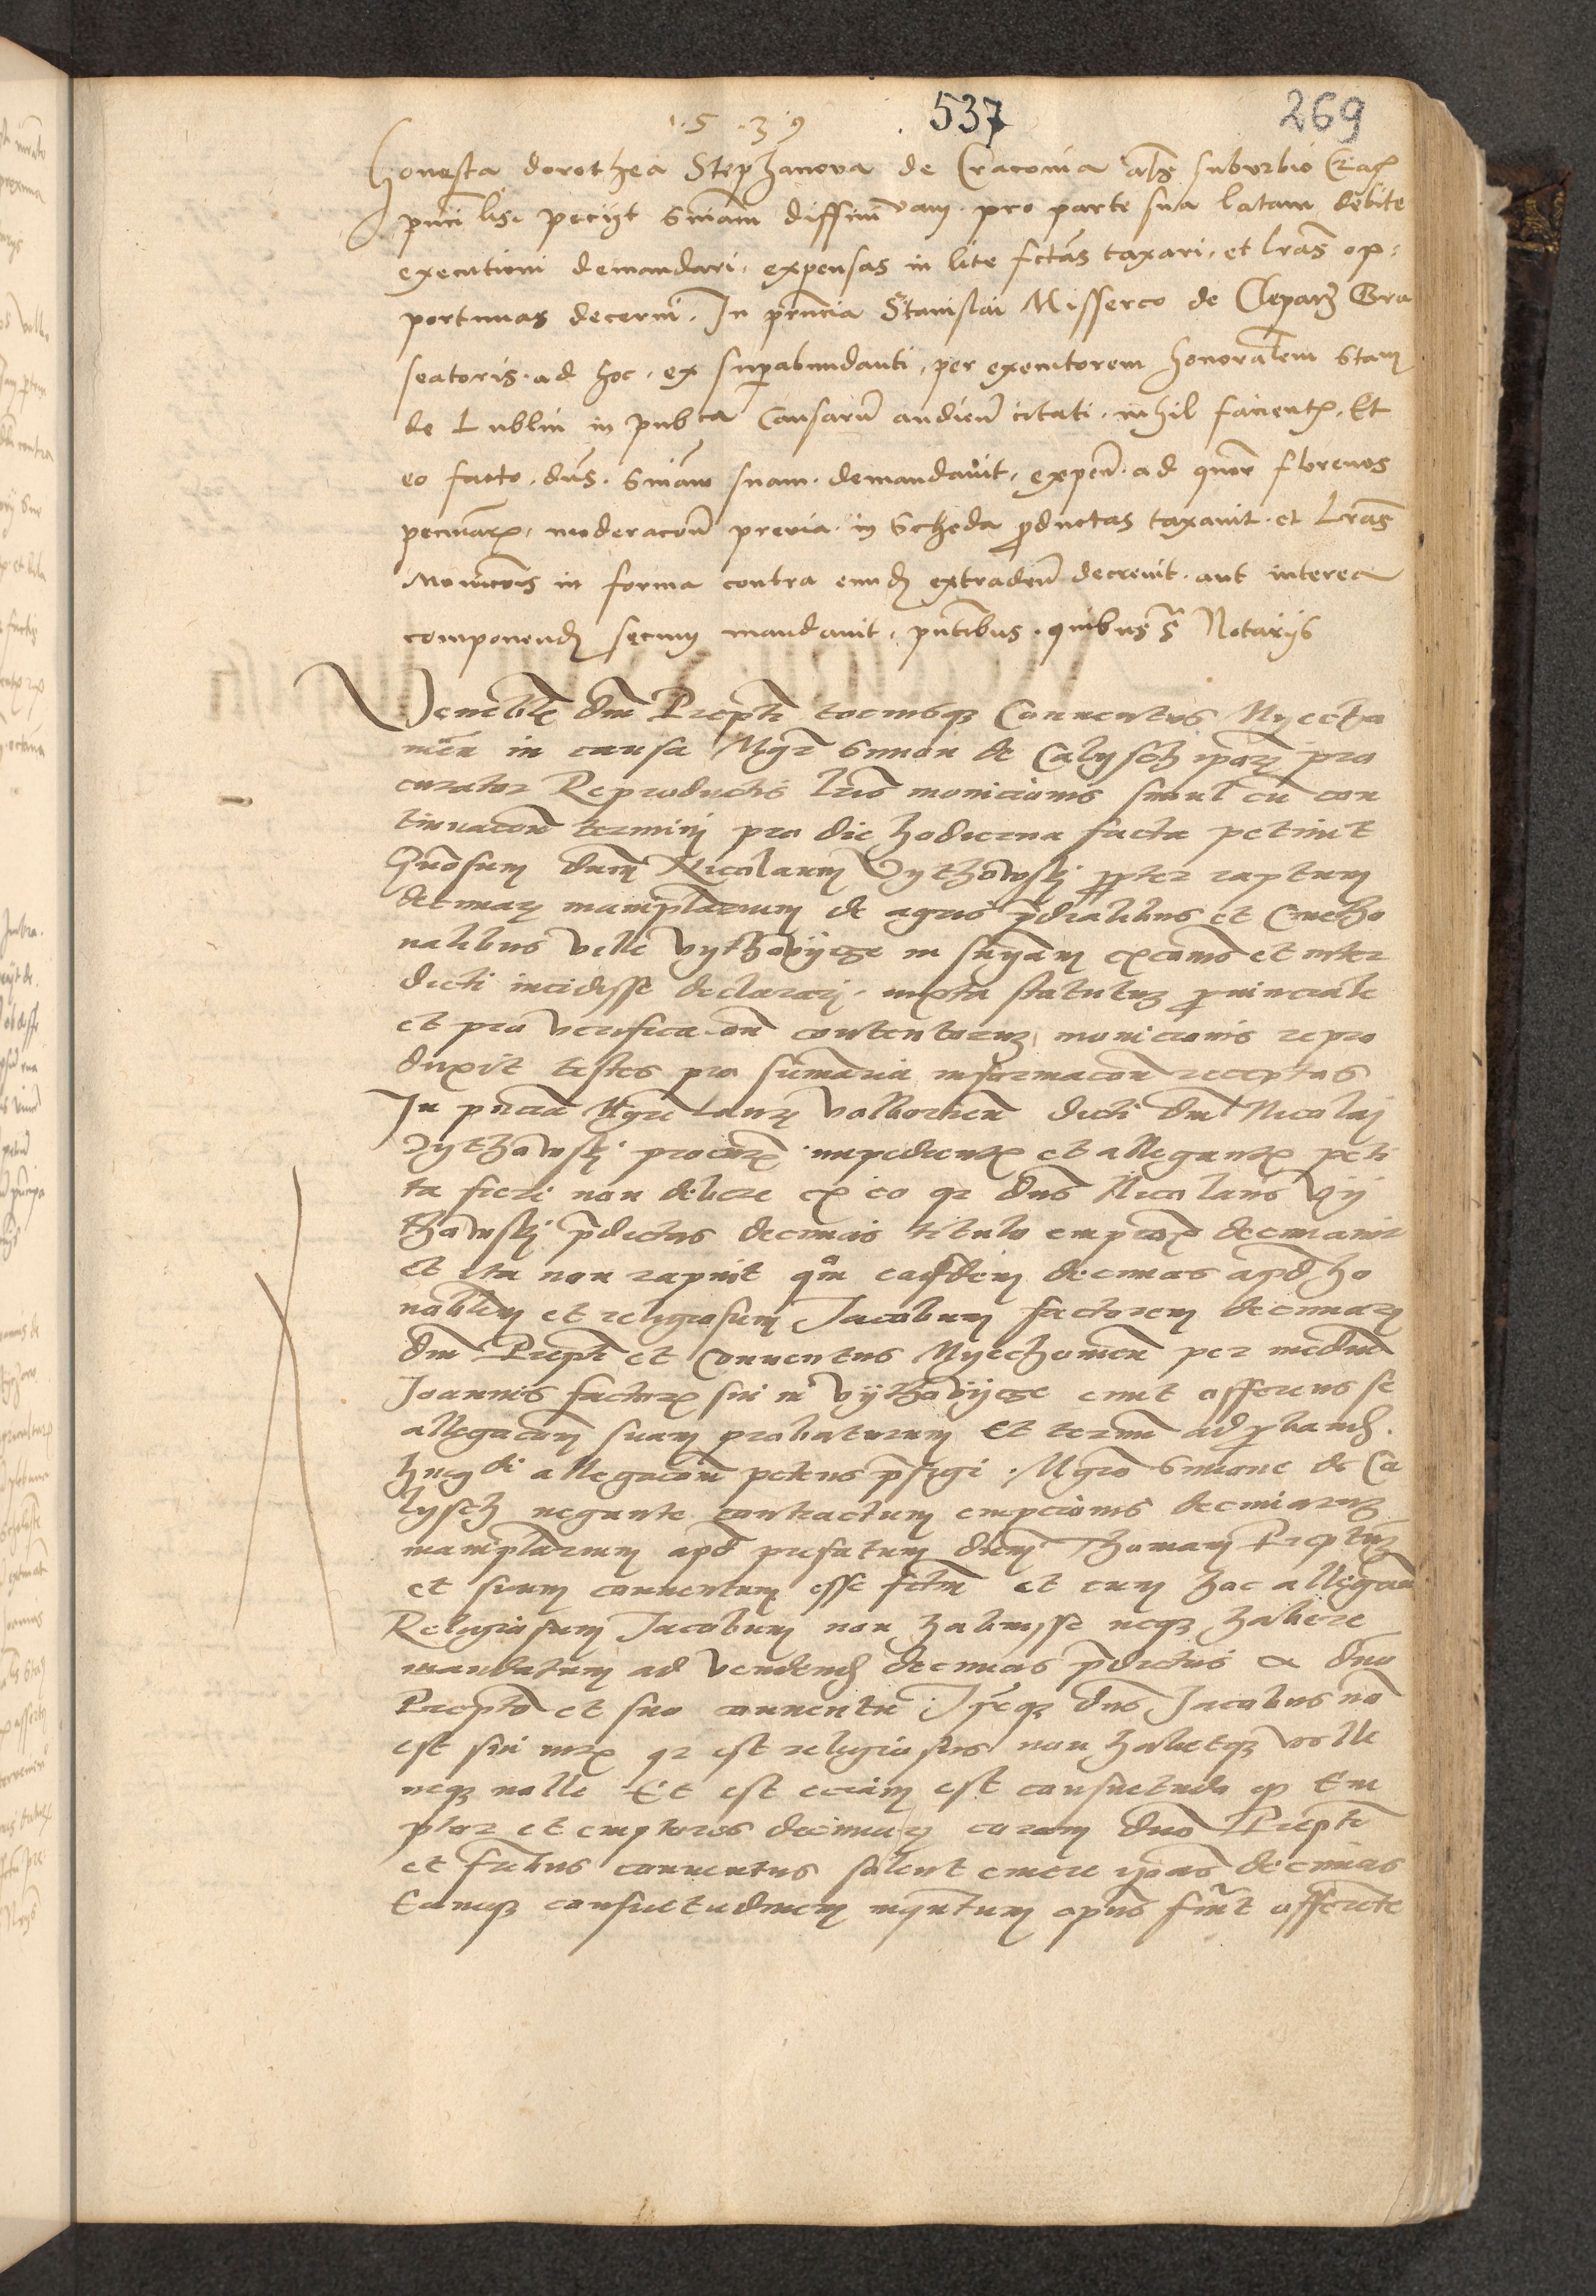 1539 537 269
Honesta dorothea Stephanova de Cracovia als suburbio Crac
pnci lis. peciyt Sniam diffini vam. pro parte sua latam debite
executioni demandari. expensas in lite fctas taxari. et lras op-
portunas decerni. In pnncia Stanislai Misserco de Cleparz Bra
seatoris. ad hoc. ex superabundanti. per executorem honorabilem Stan
de Lublin in pubca Causarum audien citati. nihil facient. Et
eo facto. dns. Sniam suam. demandavit. expen. ad quor florenos
pecuar. moderacon previa. in Scheda productas taxavit. et Lras
monicois in forma contra eund extraden decrevit. aut interea
componend secum mandavit. pntibus. quibus s Notarijs
Venebil dni Prepti tociusque Conventus Myecho
vien in causa Mgr Simon de Calysch ipor pro
curator Reproductis lris monicionis simul cu con
tinuacone termini pro die hodierna facta petiit
Gnosum dnum Nicolaum Vythowsky propter raptum
decimar manipularium de agris pdialibus et Cmetho
nalibus ville Vythovycze in sniam excomis et inter
dicti incidisse declarari. iuxta statutum provinciale
et pro verificacone contentorum monicionis repro
duxit testes pro sumaria informacone receptos
In pncia Mgri Laur Volborien dicti dni Nicolai
Vythowsky procur impedient et allegant peti
ta fieri non debere ex eo qr dns Nicolaus Vy
thowsky pdictus decimas titulo empcois decimavit
et ita non rapuit qm easdem decimas apd ho
norabilem et religiosum Jacobum factorem decimar
dni Prepti et Conventus Myechovien per medium
Joannis factor sui in Vythovycze emit offerens se
allegacom suam probaturum Et termi ad proband.
huiusdi allegacom petens pfigi. Mgro Simone de Ca
lysch negante contractum empcionis decimarum
manipularium apd prefatum dnum Thomam Preptum
et suum conventum esse fctm et cum hac allegan
Religiosum Jacobum non habuisse neque habere
mandatum ad vendend decimas pdictas a dno
Prepto et suo conventu Iseque dns Jacobus non
est sui iuris qr est religiosus non habetque velle
neque nolle Et est eciam est consuetudo qd Em
ptor et emptores decimar coram dno Prepto
et fratribus conventus solent emere ipas decimas
Eamque consuetudinem inquantum opus fuit offerente